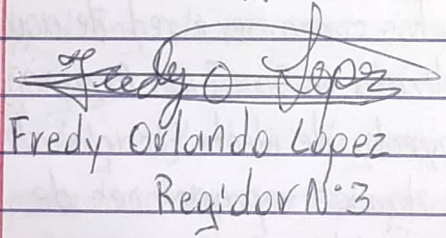 Fredy O Lopez
Fredy Orlando Lopez
Regidor N°3